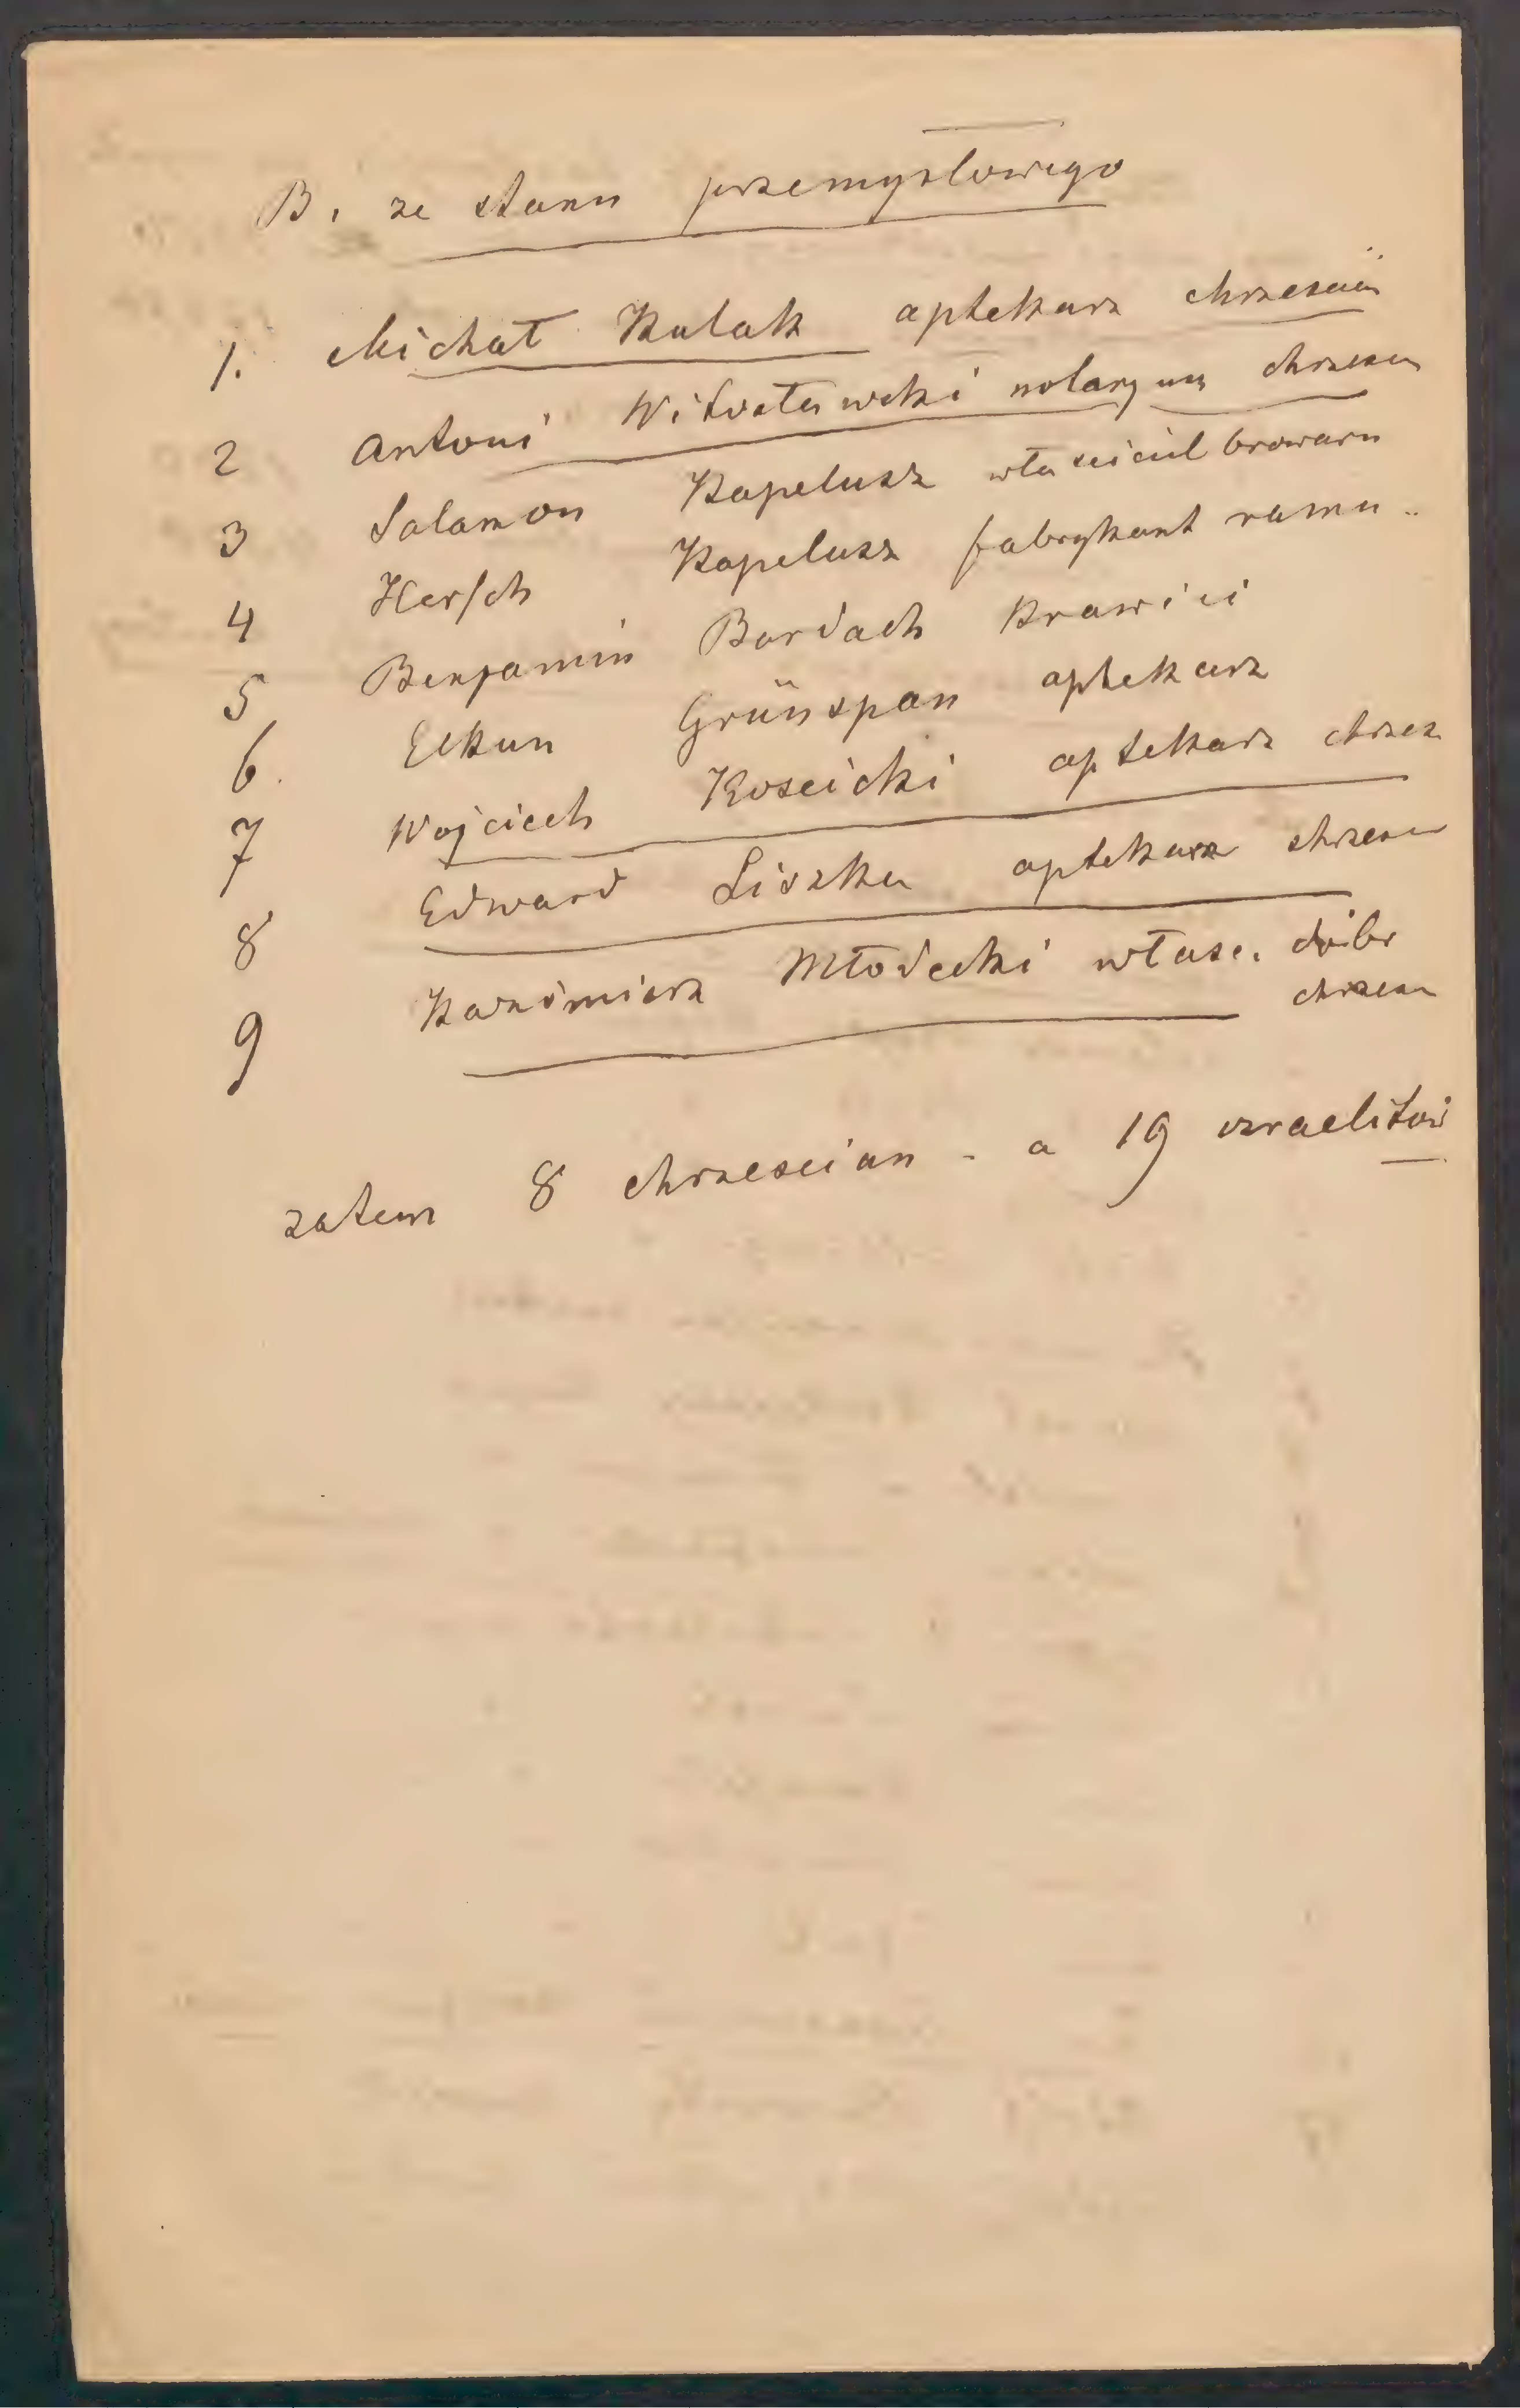 B. ze stanu przemysłowego
1. Michał Kulak aptekarz chrześcian
2 Antoni Witosławski notaryusz chrzesc
3 Salamon Kapelusz właściciel browaru
4 Hersch Kapelusz fabrykant
5 Benjamin Bardach krawiec
6. Elkun Grünspan aptekarz
7 Wojciech Kościcki aptekarz chrzes
8 Edward Liszka aptekarz chrzesc
9 Kazimierz Młodecki właśc. dóbr
chrzesc
zatem 8 chrześcian - a 19 izraelitów